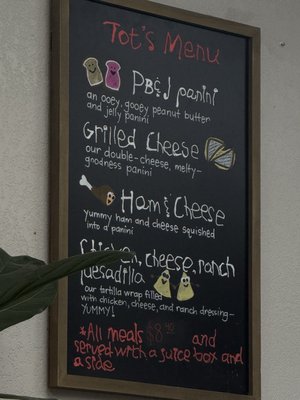 Tot's Menu
PB&J panini
an ooey, gooey peanut butter
and jelly panini
Grilled Cheese
our double-cheese, melty-
goodness panini
Ham & Cheese
yummy ham and cheese squished
into a panini
Chicken, cheese, ranch
quesadilla
our tortilla wrap filled
with chicken, cheese, and ranch dressing-
YUMMY!
*All meals and
served with a juice box and
a side